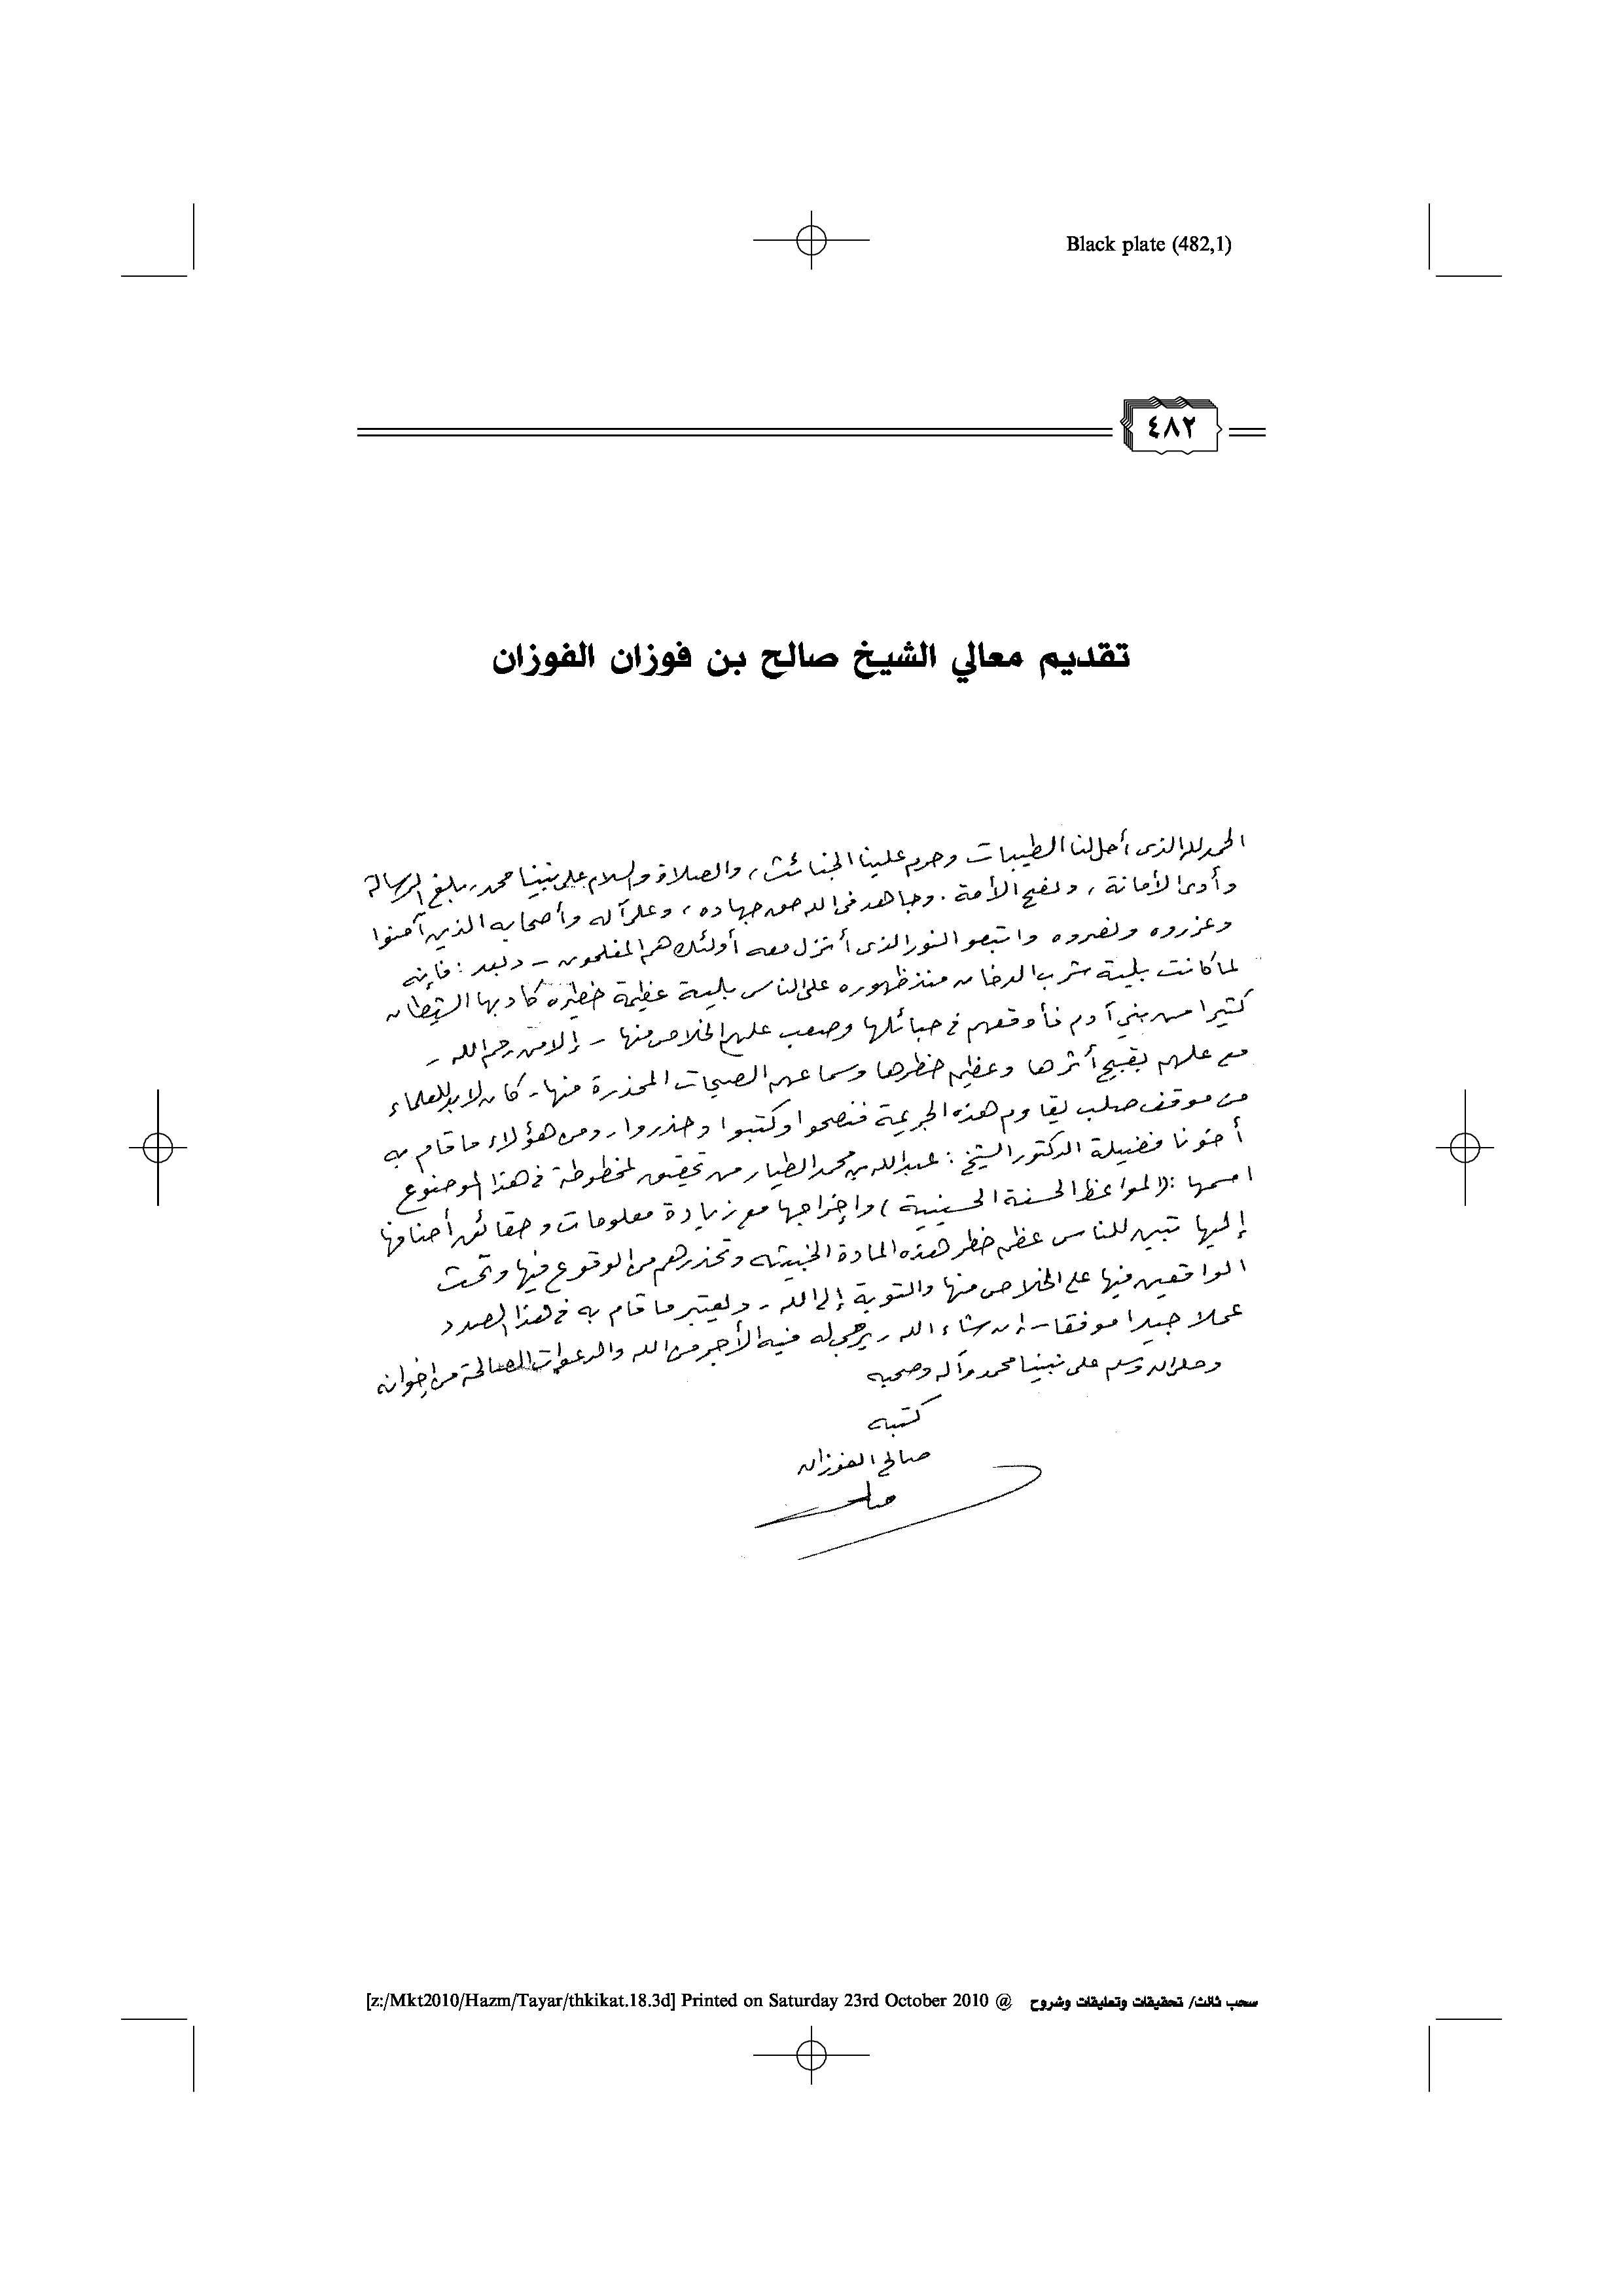 Black plate (482,1)
٤٨٢
تقديم معالي الشيخ صالح بن فوزان الفوزان
الحمد لله الذي أحل لنا الطيبات وحرم علينا الخبائث، والصلاة والسلام على نبينا محمد، بلغ الرسالة
وأدى الأمانة، ونصح الأمة. وجاهد في الله حق جهاده، وعلى آله وأصحابه الذين آمنوا
وعزروه ونصروه واتبعو النور الذي أنزل معه أولئك هم المفلحون - وبعد: فإنه
لما كانت بلية شرب الدخان منذ ظهوره على الناس بلية عظيمة خطيرة كاد بها الشيطان
كثيرا من بني آدم فأوقعهم في حبائلها وصعب عليهم الخلاص منها - إلا من رحم الله -
مع علمهم بقبيح أثرها وعظيم خطرها وسماعهم الصيحات المحذرة منها - كان لابد للعلماء
من موقف صلب يقاوم هذه الجريمة فنصحوا وكتبوا وحذروا، ومن هؤلاء ما قام به
أخونا فضيلة الدكتور الشيخ: عبدالله بن محمد الطيار من تحقيق لمخطوطة في هذا الموضوع
اسمها: (المواعظ الحسنة الحسينية) وإخراجها مع زيادة معلومات وحقائق أضافها
إليها تبين للناس عظم خطر هذه المادة الخبيثة وتحذرهم من الوقوع فيها وتحث
الواقعين فيها على الخلاص منها والتوبة إلى الله - ويعتبر ما قام به في هذا الصدد
عملا جيدا موفقا - إن شاء الله - يرجى له فيه الأجر من الله والدعوات الصالحة من إخوانه
وصلى الله وسلم على نبينا محمد وآله وصحبه
كتبه
صالح الفوزان
[z:/Mkt2010/Hazm/Tayar/thkikat.18.3d] Printed on Saturday 23rd October 2010 @ سحب ثالث/ تحقيقات وتعليقات وشروح